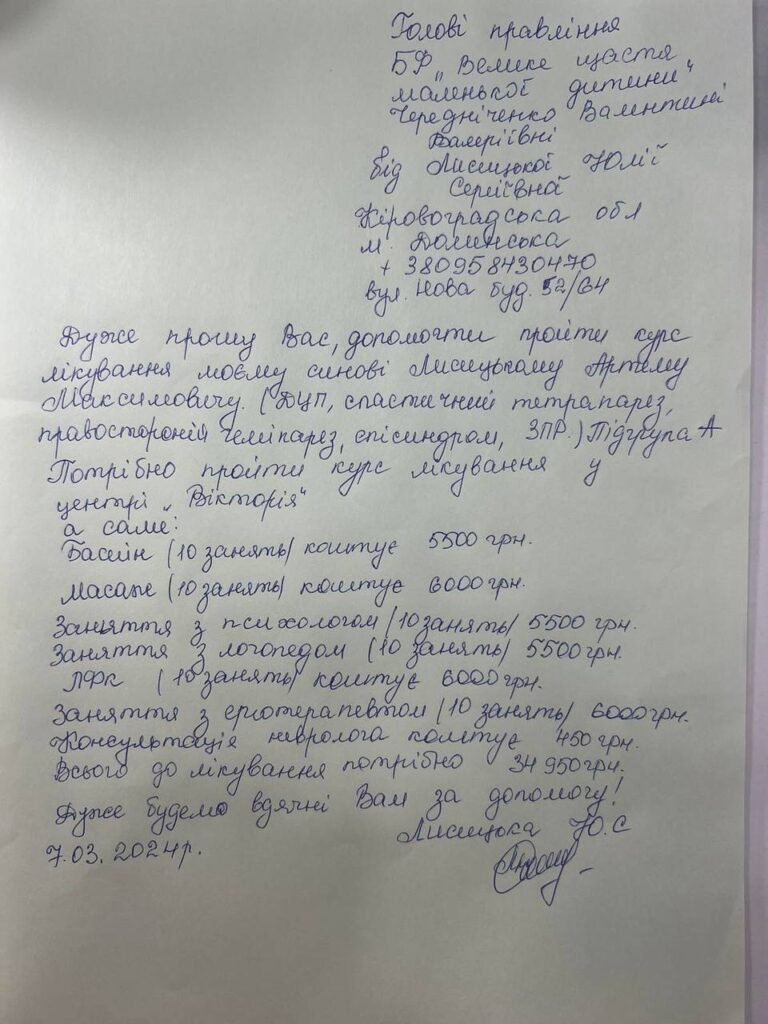 Голові правління
БФ „Велике щастя
маленької дитини"
Чередніченко Валентині
Валеріївні
від Лисицької Юлії
Сергіївної
Кіровоградська обл
м. Долинська
+ 380958430470
вул. Нова буд. 52/64
Дуже прошу Вас, допомогти пройти курс
лікування моєму синові Лисицькому Артему
Максимовичу. (ДЦП, спастичний тетрапарез,
правостороній геміпарез, епісиндром, ЗПР.) Підгрупа А
Потрібно пройти курс лікування у
центрі „Вікторія"
а саме:
Басейн (10 занять) коштує 5500 грн.
Масаж (10 занять) коштує 6000 грн.
Заняття з психологом (10 занять) 5500 грн.
Заняття з логопедом (10 занять) 5500 грн.
ЛФК (10 занять) коштує 6000 грн.
Заняття з ерготерапевтом (10 занять) 6000 грн.
Консультація невролога коштує 450 грн.
Всього до лікування потрібно 34 950 грн.
Дуже будемо вдячні Вам за допомогу!
Лисицька Ю.С
7.03.2024 р.